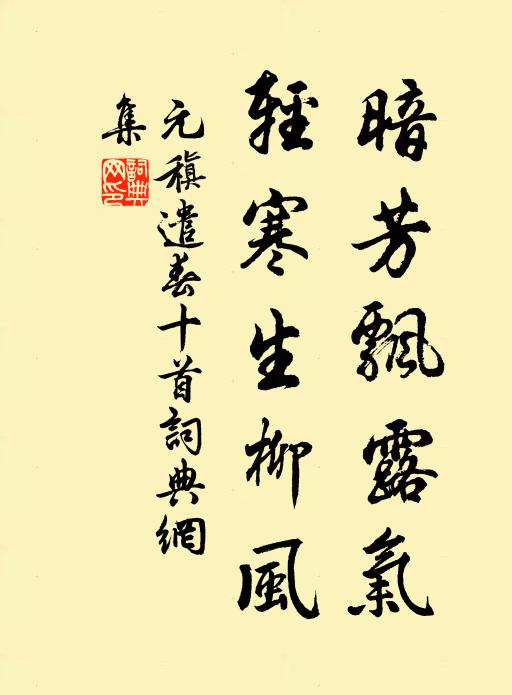 暗芳飄露氣
輕寒生柳風
元稹遣春十首詞典網
集
詞典
網印